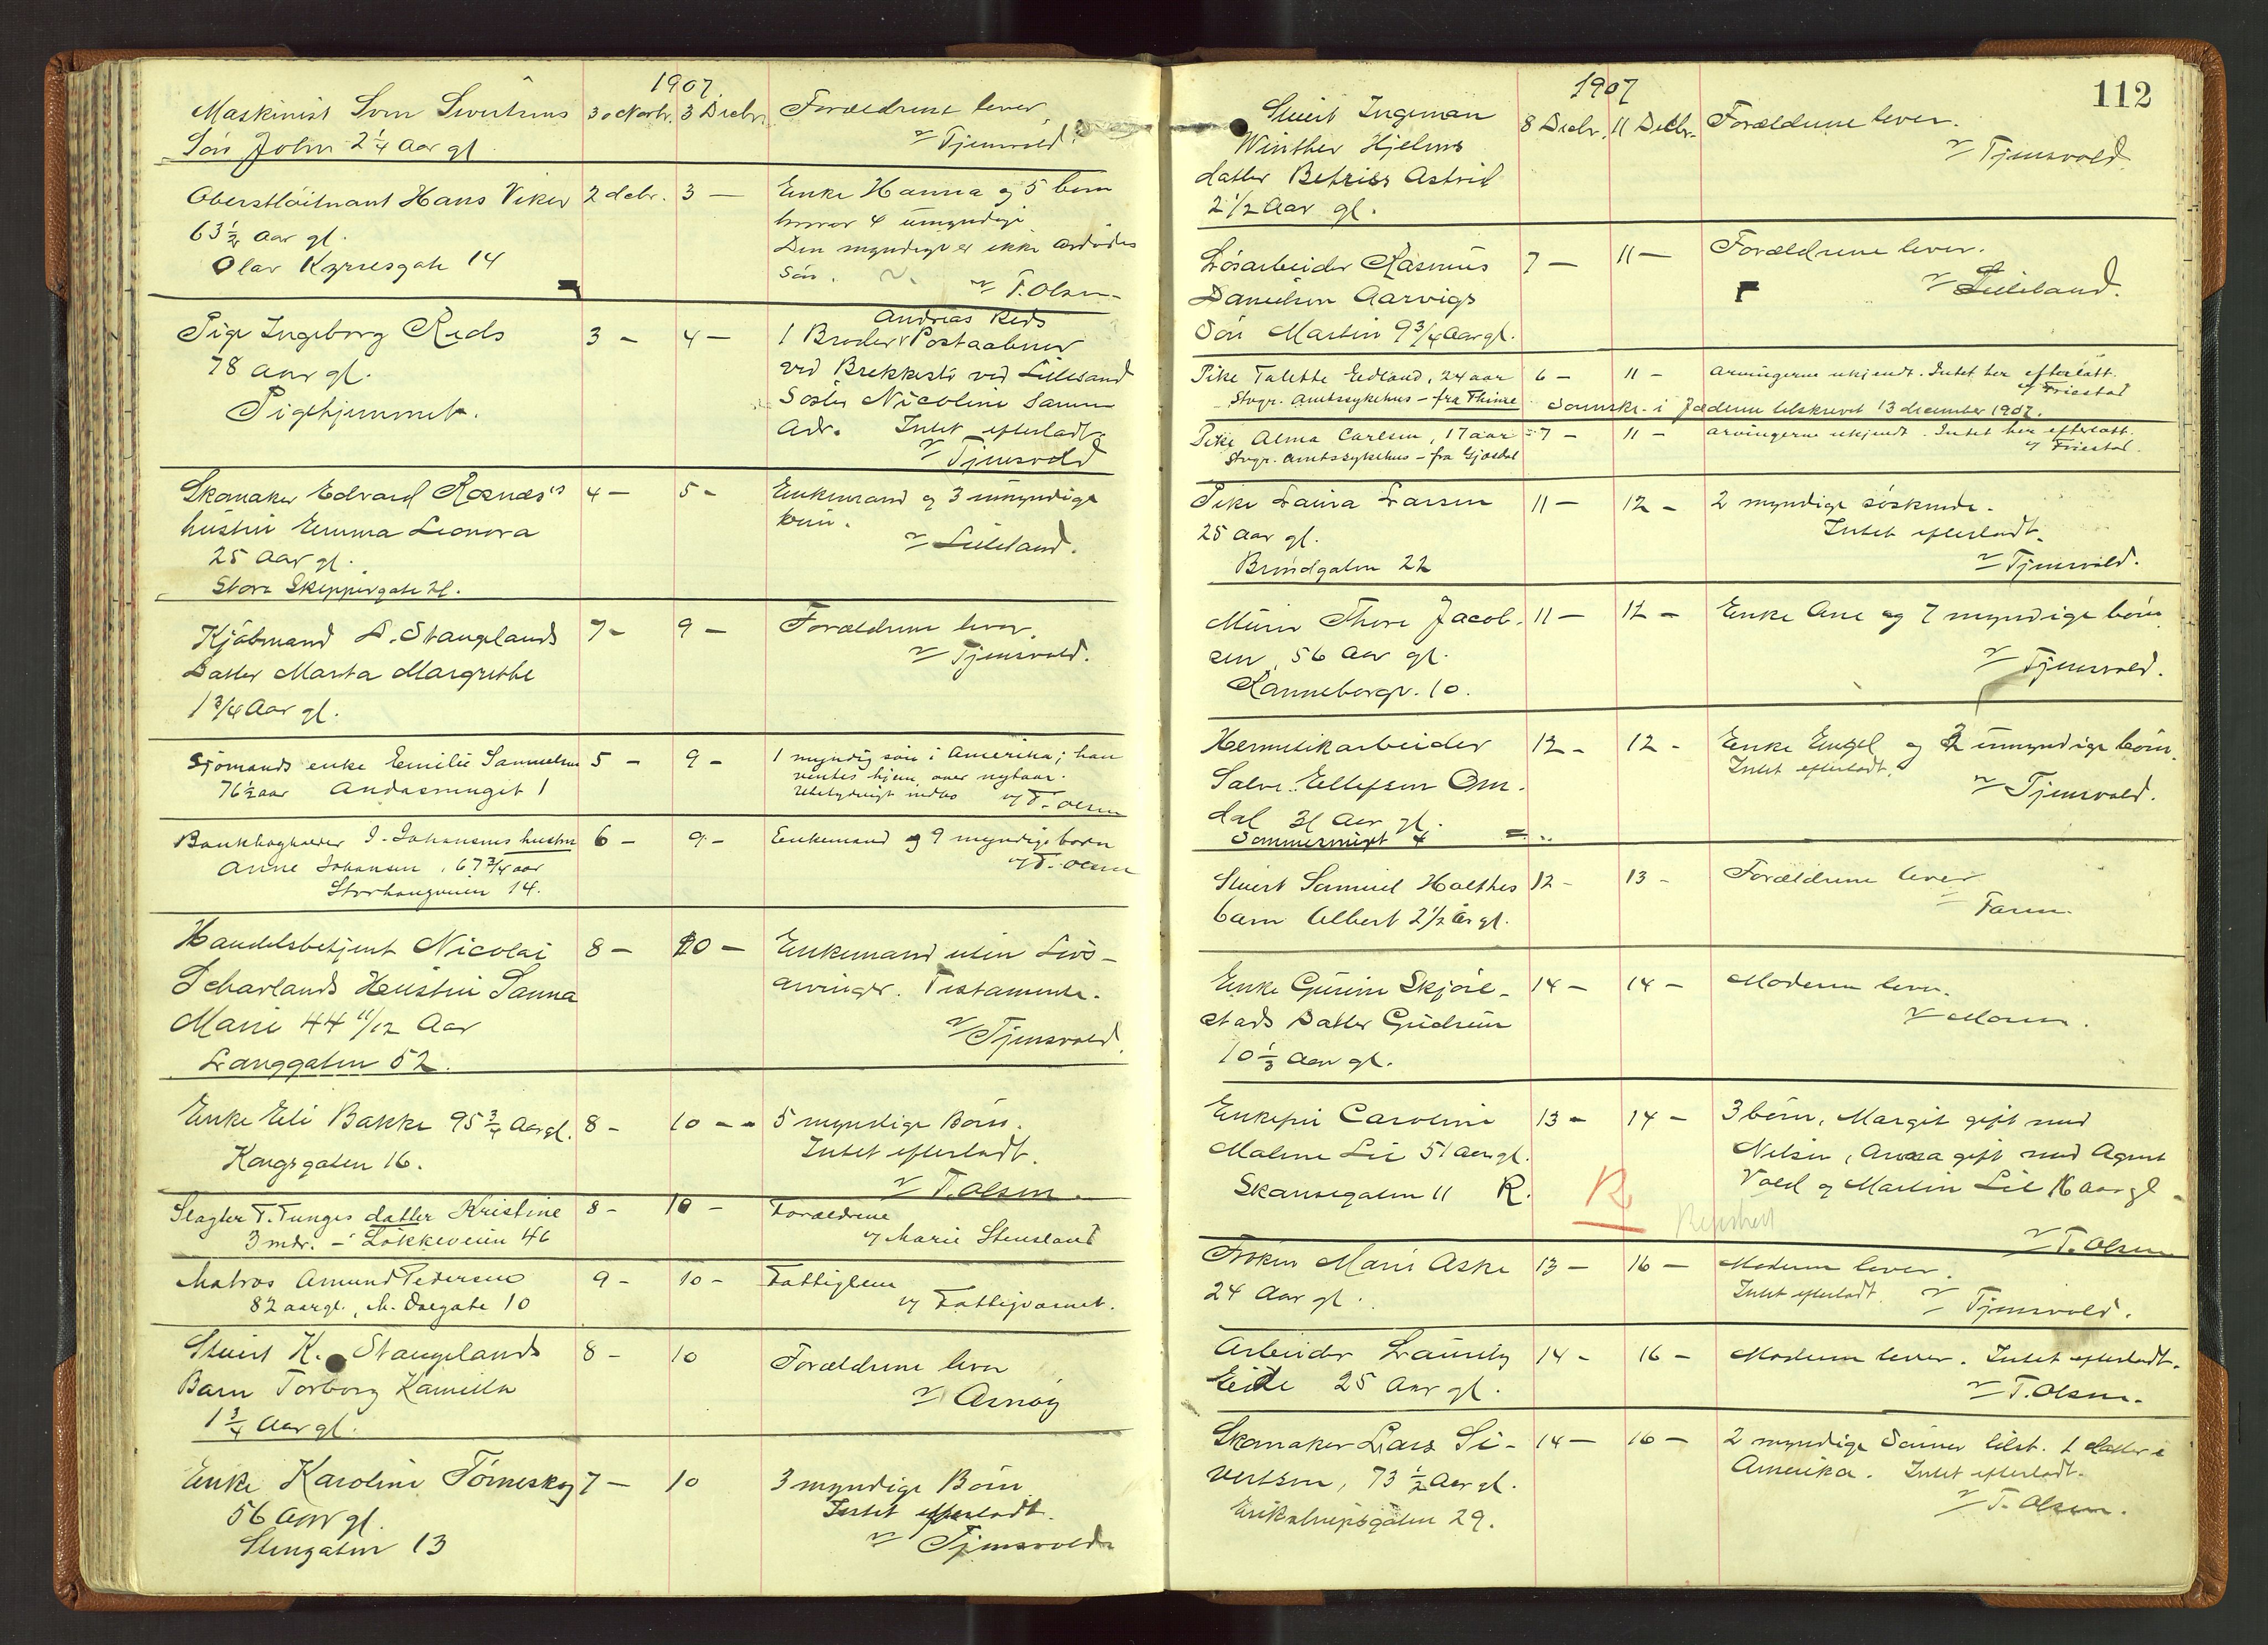 1907.
Maskinist Sven Sivertsens 30 Novbr. 3 Decbr. Forældrene lever
Søn John 2 1/4 Aar gl. Tjensvold.
Oberstløitnant Hans Viker 2 debr. 3 — Enke Hanna og 5 børn
63 1/2 Aar gl. hvorav 4 umyndige
Olav Kyrresgate 14 Den myndige er ikke avdødes
Søn. T. Olsen
Pige Ingeborg Reds 3 — 4 — Andreas Reds
78 aar gl. 1 Broder Postaabner
Pigehjemmet. ved Brekkestø ved Lillesand
Søster Nicoline Samme
Adr. Intet efterladt.
Tjensvold
Skomaker Edvard Rosnæs's 4 — 5 — Enkemand og 3 umyndige
hustru Emma Leonora børn.
25 Aar gl. Lilleland.
Store Skippergate 21.
Kjøbmand A. Stangelands 7 — 9 — Forældrene lever.
Datter Marta Margrethe Tjensvold.
1 3/4 Aar gl.
Sjømands enke Emilie Samuelsen 5 — 9 — 1 myndig søn i Amerika; han
76 1/2 aar Andasmuget 1 ventes hjem over nytaar.
Ubetydeligt indbo v/ T. Olsen
Bankbogholder J. Johansens hustru 6 — 9 — Enkemand og 9 myndige børn
Anne Johansen, 67 3/4 aar v/ T. Olsen
Storhaugveien 14.
Handelsbetjent Nicolai 8 — 10 — Enkemand uten Livs-
Scharlands Hustru Sanna arvinger. Testamente.
Marie 44 11/12 Aar Tjensvold.
Langgaten 52.
Enke Eli Bakke 95 3/4 Aar gl. 8 — 10 — 5 myndige Børn.
Kongsgaten 16. Intet efterladt.
T. Olsen.
Slagter T. Tunges datter Kristine 8 — 10 — Forældrene
3 mdr. — Løkkeveien 46 v/ Marie Stensland
Matros Amund Pedersen 9 — 10 — Fattiglem
82 aar gl., N. Dalgate 10 v/ Fattigvæsnet.
Stuert K. Stangelands 8 — 10 Forældrene lever
Barn Torborg Kamilla Asnøy
1 3/4 Aar gl.
Enke Karoline Tørneskog 7 — 10 3 myndige Børn
56 Aar gl. Intet efterladt.
Stengaten 13 Tjensvold
112
1907
Stuert Ingeman 8 Decbr. 11 Decbr. Forældrene lever.
Winther Hjelms Tjensvold
datter Betzies Astrid
2 1/2 Aar gl.
Løsarbeider Rasmus 7 — 11 — Forældrene lever.
Danielsen Aarvigs Lilleland.
Søn Martin 9 3/4 Aar gl.
Pike Talette Edland, 24 aar 6 — 11 — Arvingerne ukjendt. Intet her efterlatt.
Stvgr. Amtssykehus — fra Thime v/ Friestad
Sorenskr. i Jæderen tilskrevet 13 december 1907.
Pike Alma Carlsen, 17 aar 7 — 11 — Arvingerne ukjendt. Intet her efterlatt.
Stvgr. Amtssykehus — fra Gjæsdal v/ Friestad.
Pike Laura Larsen 11 — 12 — 2 myndige søskende.
25 Aar gl. Intet efterladt.
Brøndgaten 22 Tjensvold.
Murer Thore Jacob- 11 — 12 — Enke Ane og 7 myndige børn.
sen, 56 Aar gl. Tjensvold.
Rannebergv. 10.
Hermetikarbeider 12 — 12 — Enke Engel og 2 umyndige børn.
Salve Ellefsen Om- Intet efterladt.
dal 31 Aar gl. Tjensvold.
Sommermuget 4
Stuert Samuel Holthes 12 — 13 — Forældrene lever
barn Albert 2 1/2 År gl. Faren.
Enke Gurine Skjøl- 14 — 14 — Moderen lever.
stads Datter Gudrun Moren.
10 1/3 Aar gl.
Enkefru Caroline 13 — 14 — 3 børn, Margit gift med
Malene Lie 51 Aar gl. Nilsen, Anna gift med Agent
Skansegaten 11 R. R Vold og Martin Lie 16 aar gl
T. Olsen
Frøken Marie Aske 13 — 16 — Moderen lever.
24 Aar gl. Intet efterladt. Tjensvold.
Arbeider Lauritz 14 — 16 — Moderen lever. Intet efterladt.
Eide 25 Aar gl. T. Olsen.
Skomaker Lars Si- 14 — 16 — 2 myndige Sønner tilst. 1 datter i
vertsen, 73 1/2 Aar gl. Amerika. Intet efterladt.
Erikstrupsgaten 29. T. Olsen.